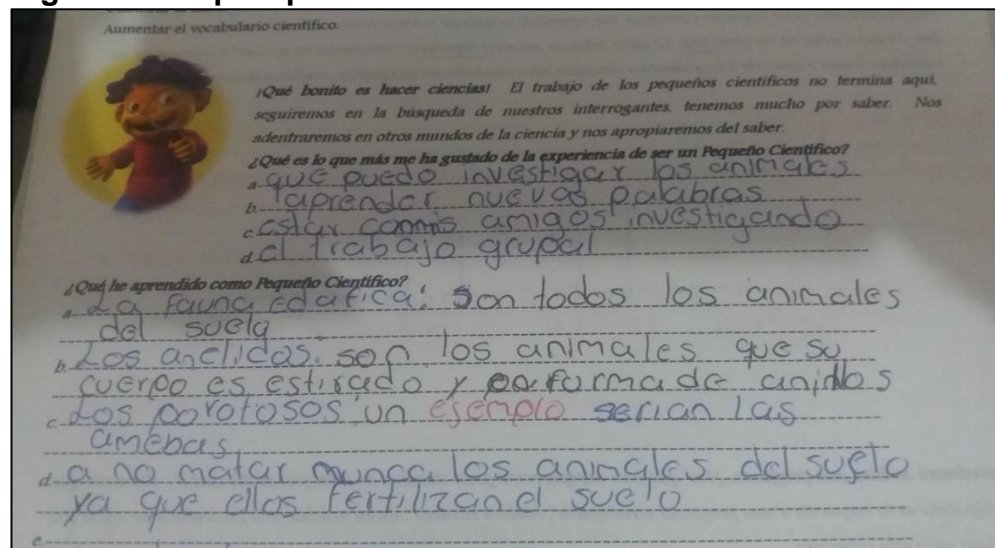 Aumentar el vocabulario científico.
¡Qué bonito es hacer ciencias! El trabajo de los pequeños científicos no termina aquí,
seguiremos en la búsqueda de nuestros interrogantes, tenemos mucho por saber. Nos
adentraremos en otros mundos de la ciencia y nos apropiaremos del saber.
¿Qué es lo que más me ha gustado de la experiencia de ser un Pequeño Científico?
a. que puedo investigar los animales
b. aprender nuevas palabras
c. estar con mis amigos investigando
d. el trabajo grupal
¿Qué he aprendido como Pequeño Científico?
a. La fauna edafica: son todos los animales
del suelo
b. Los anelidos. son los animales que su
cuerpo es estirado y en forma de anillos
c. Los porotosos un ejemplo serian las
amebas
d. a no matar nunca los animales del suelo
ya que ellos fertilizan el suelo
e.